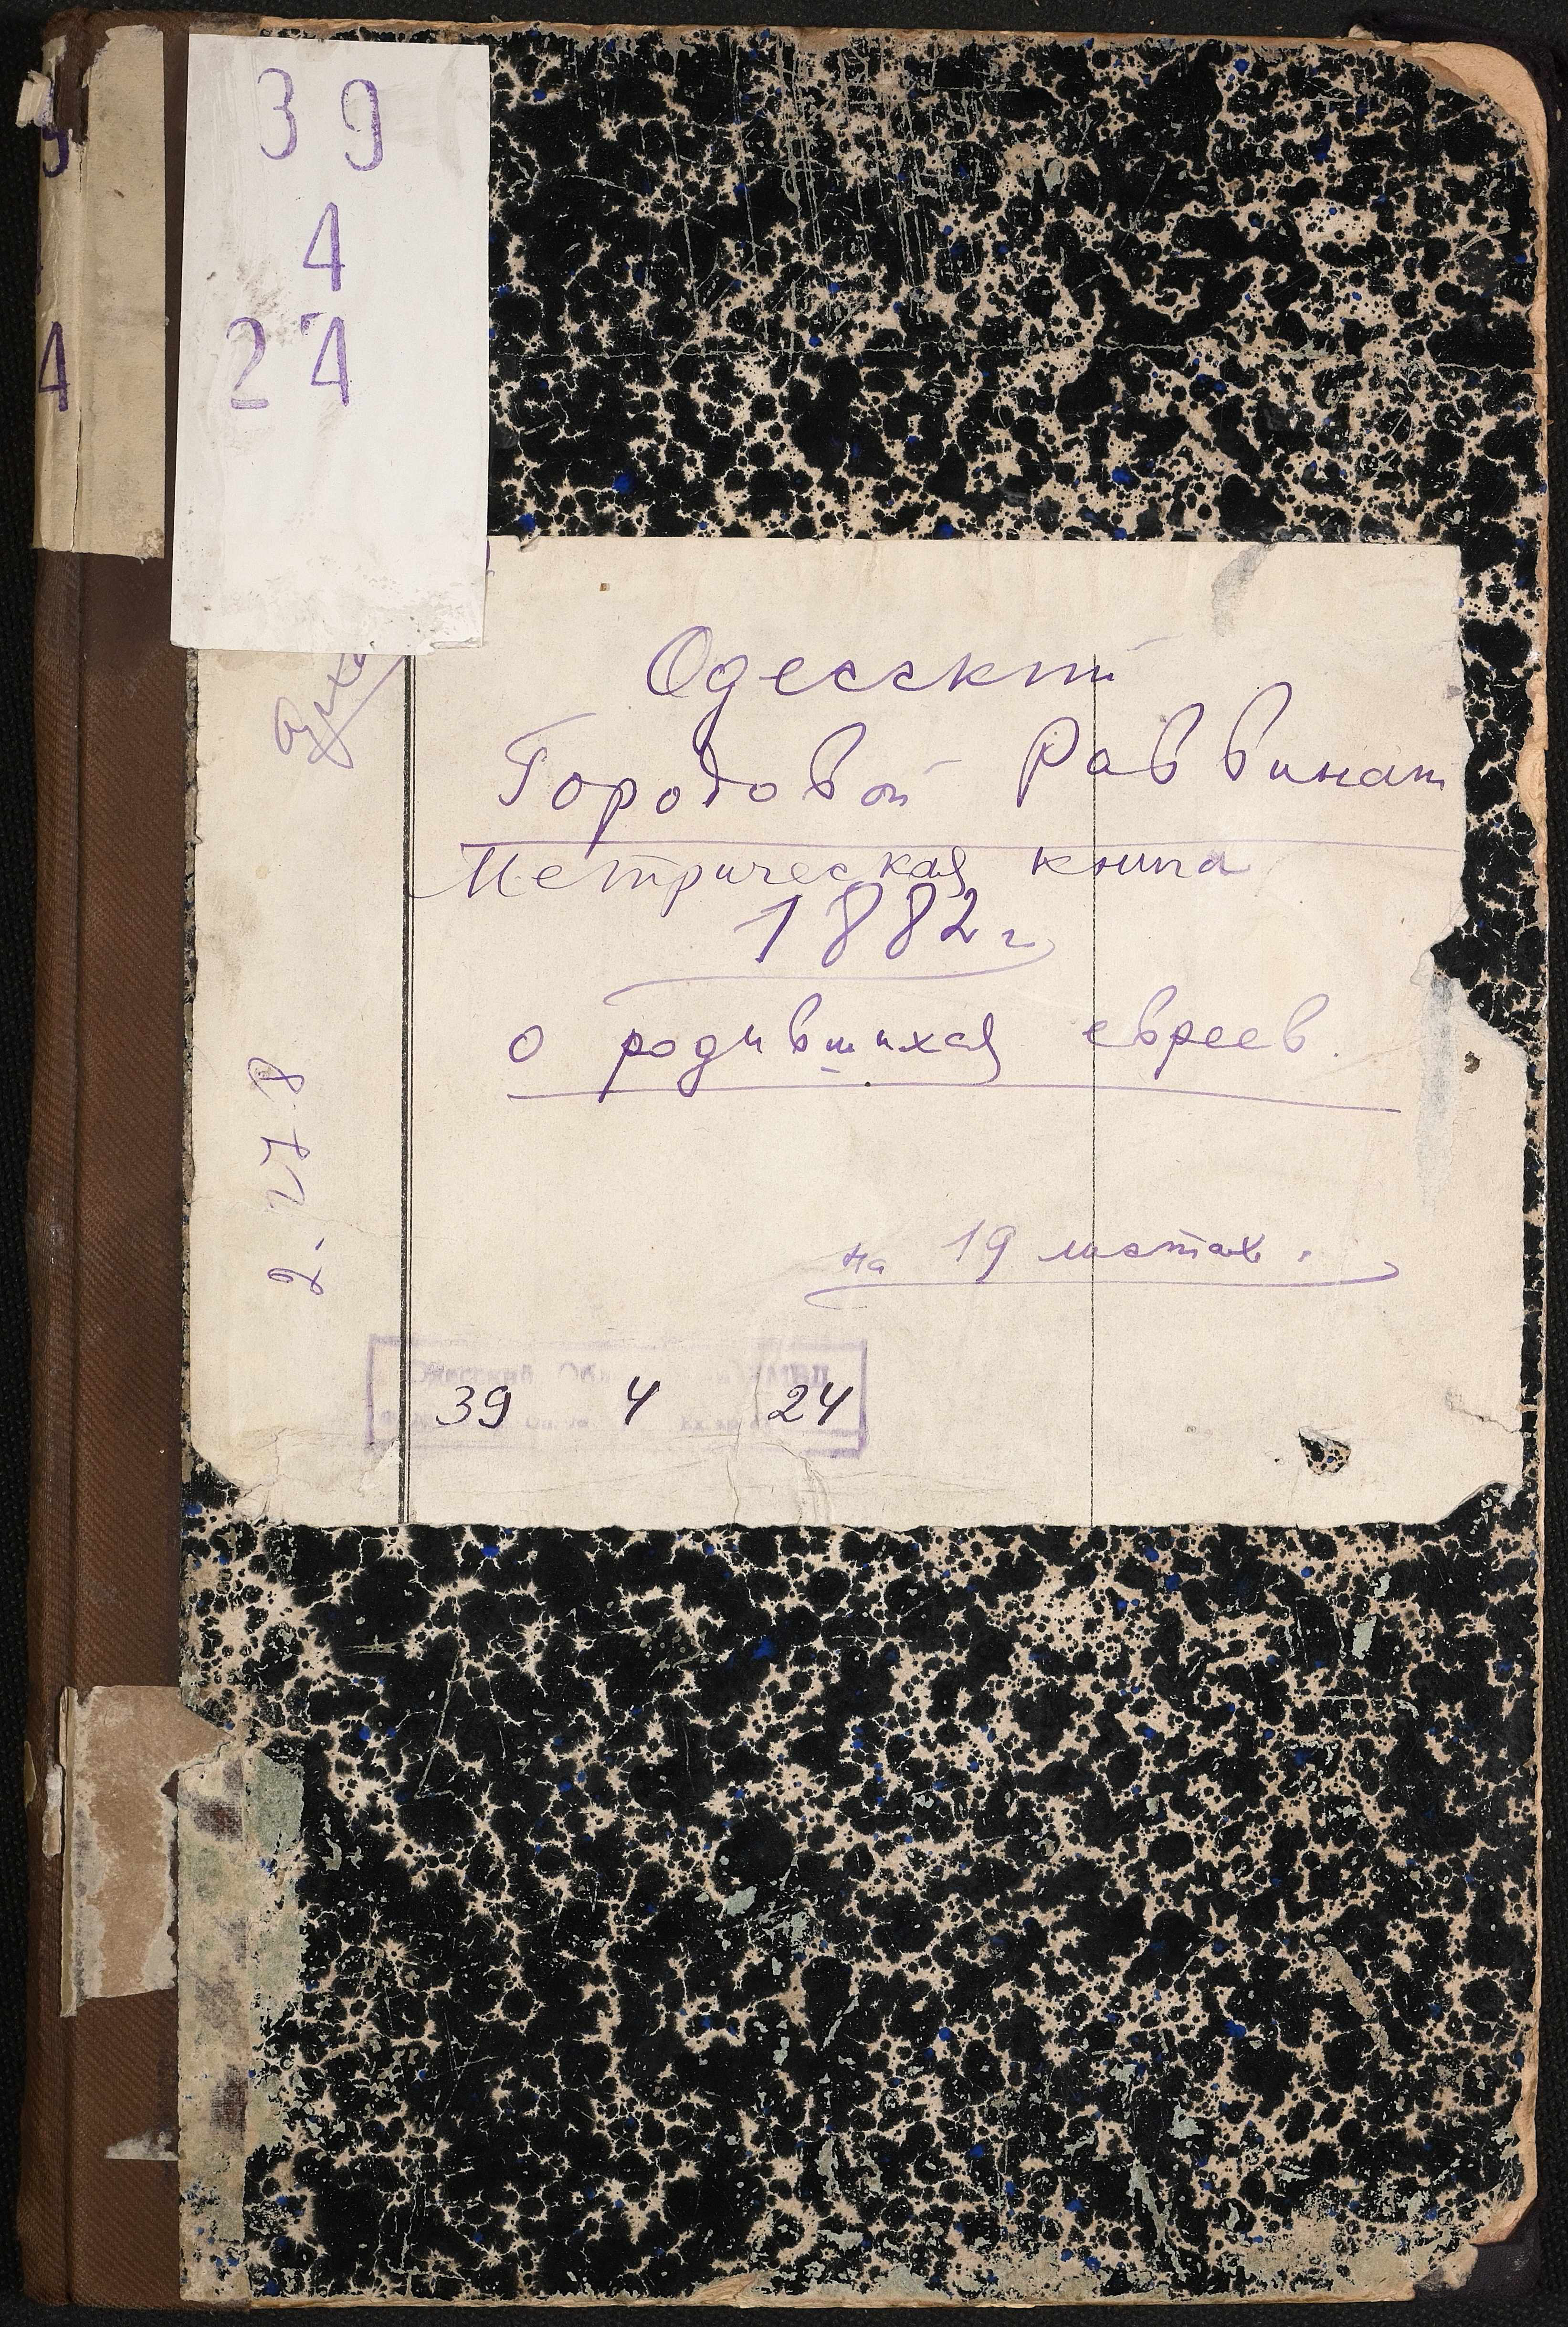 39
4
24
4
Одесский
Городовой Раввинат
Метрическая книга
1882 г
о родившихся евреев.
на 19 листах.
Одесский
39 4 24